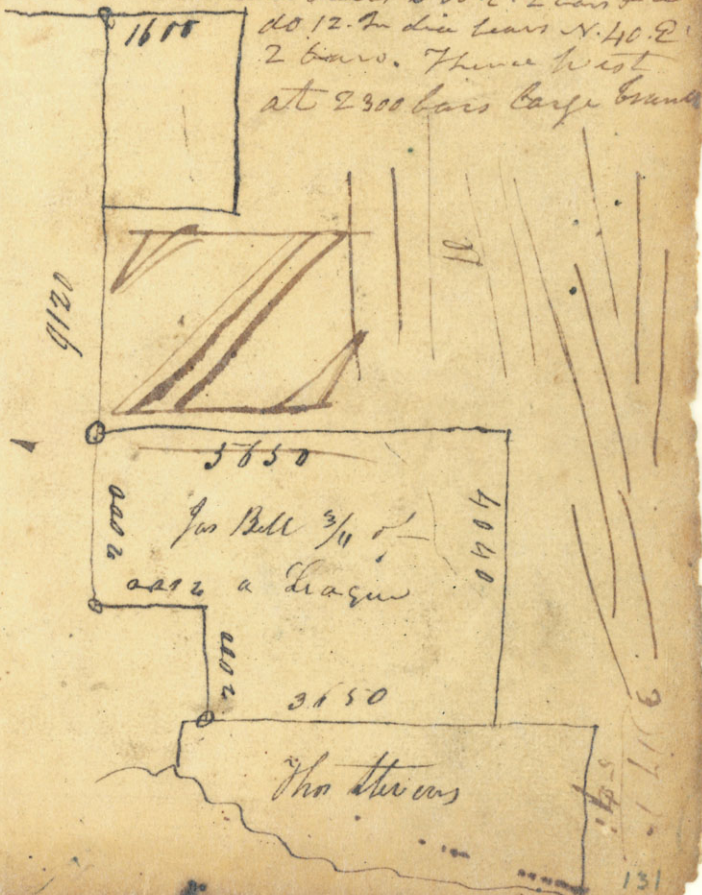 do 12. In dia bears N. 40. E
2 bars. Thence West
at 2300 bars large
1600
9120
5650
2000
Jas Bell 3/11 of
a League
4040
2000
2000
3650
Thos Stevens
131